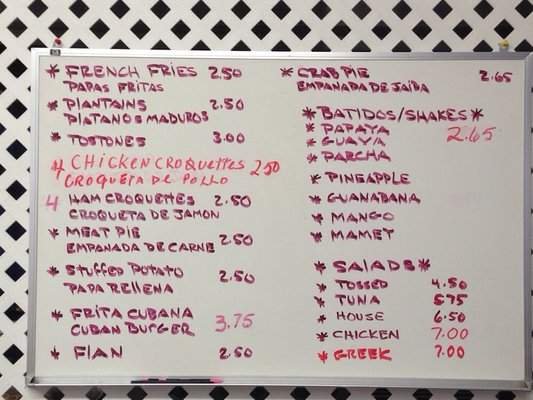 * FRENCH FRIES 2.50
PAPAS FRITAS
* PLANTAINS 2.50
PLATANOS MADUROS
* TOSTONES 3.00
4 CHICKEN CROQUETTES 2.50
CROQUETA DE POLLO
4 HAM CROQUETTES 2.50
CROQUETA DE JAMON
* MEAT PIE 2.50
EMPANADA DE CARNE
* STUFFED POTATO 2.50
PAPA RELLENA
* FRITA CUBANA 3.75
CUBAN BURGER
* FLAN 2.50
* CRAB PIE 2.65
EMPANADA DE JAIBA
* BATIDOS/SHAKES *
* PAPAYA 2.65
* GUAYA
* PARCHA
* PINEAPPLE
* GUANABANA
* MANGO
* MAMEY
* SALADS *
* TOSSED 4.50
* TUNA 5.75
* HOUSE 6.50
* CHICKEN 7.00
* GREEK 7.00